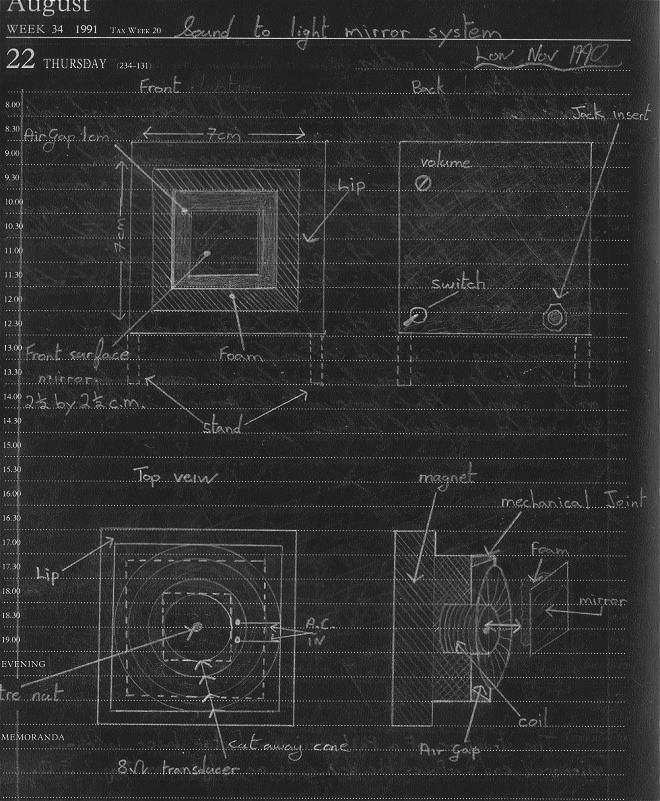 August
WEEK 34 1991 TAX WEEK 20
Sound to light mirror system
22 THURSDAY (234–131)
Nov 1990
Front
Back
8.00
8.30
9.00
9.30
10.00
10.30
11.00
11.30
12.00
12.30
13.00
13.30
14.00
14.30
15.00
15.30
16.00
16.30
17.00
17.30
18.00
18.30
19.00
EVENING
MEMORANDA
Jack insert
Air Gap 1cm
7cm
volume
Lip
7cm
switch
Front surface
mirror.
2½ by 2½ c.m.
Foam
stand
Top veiw
magnet
mechanical Joint
Foam
Lip
mirror
A.C.
IN
tre nut
coil
cut away cone
Air Gap
8Ω transducer